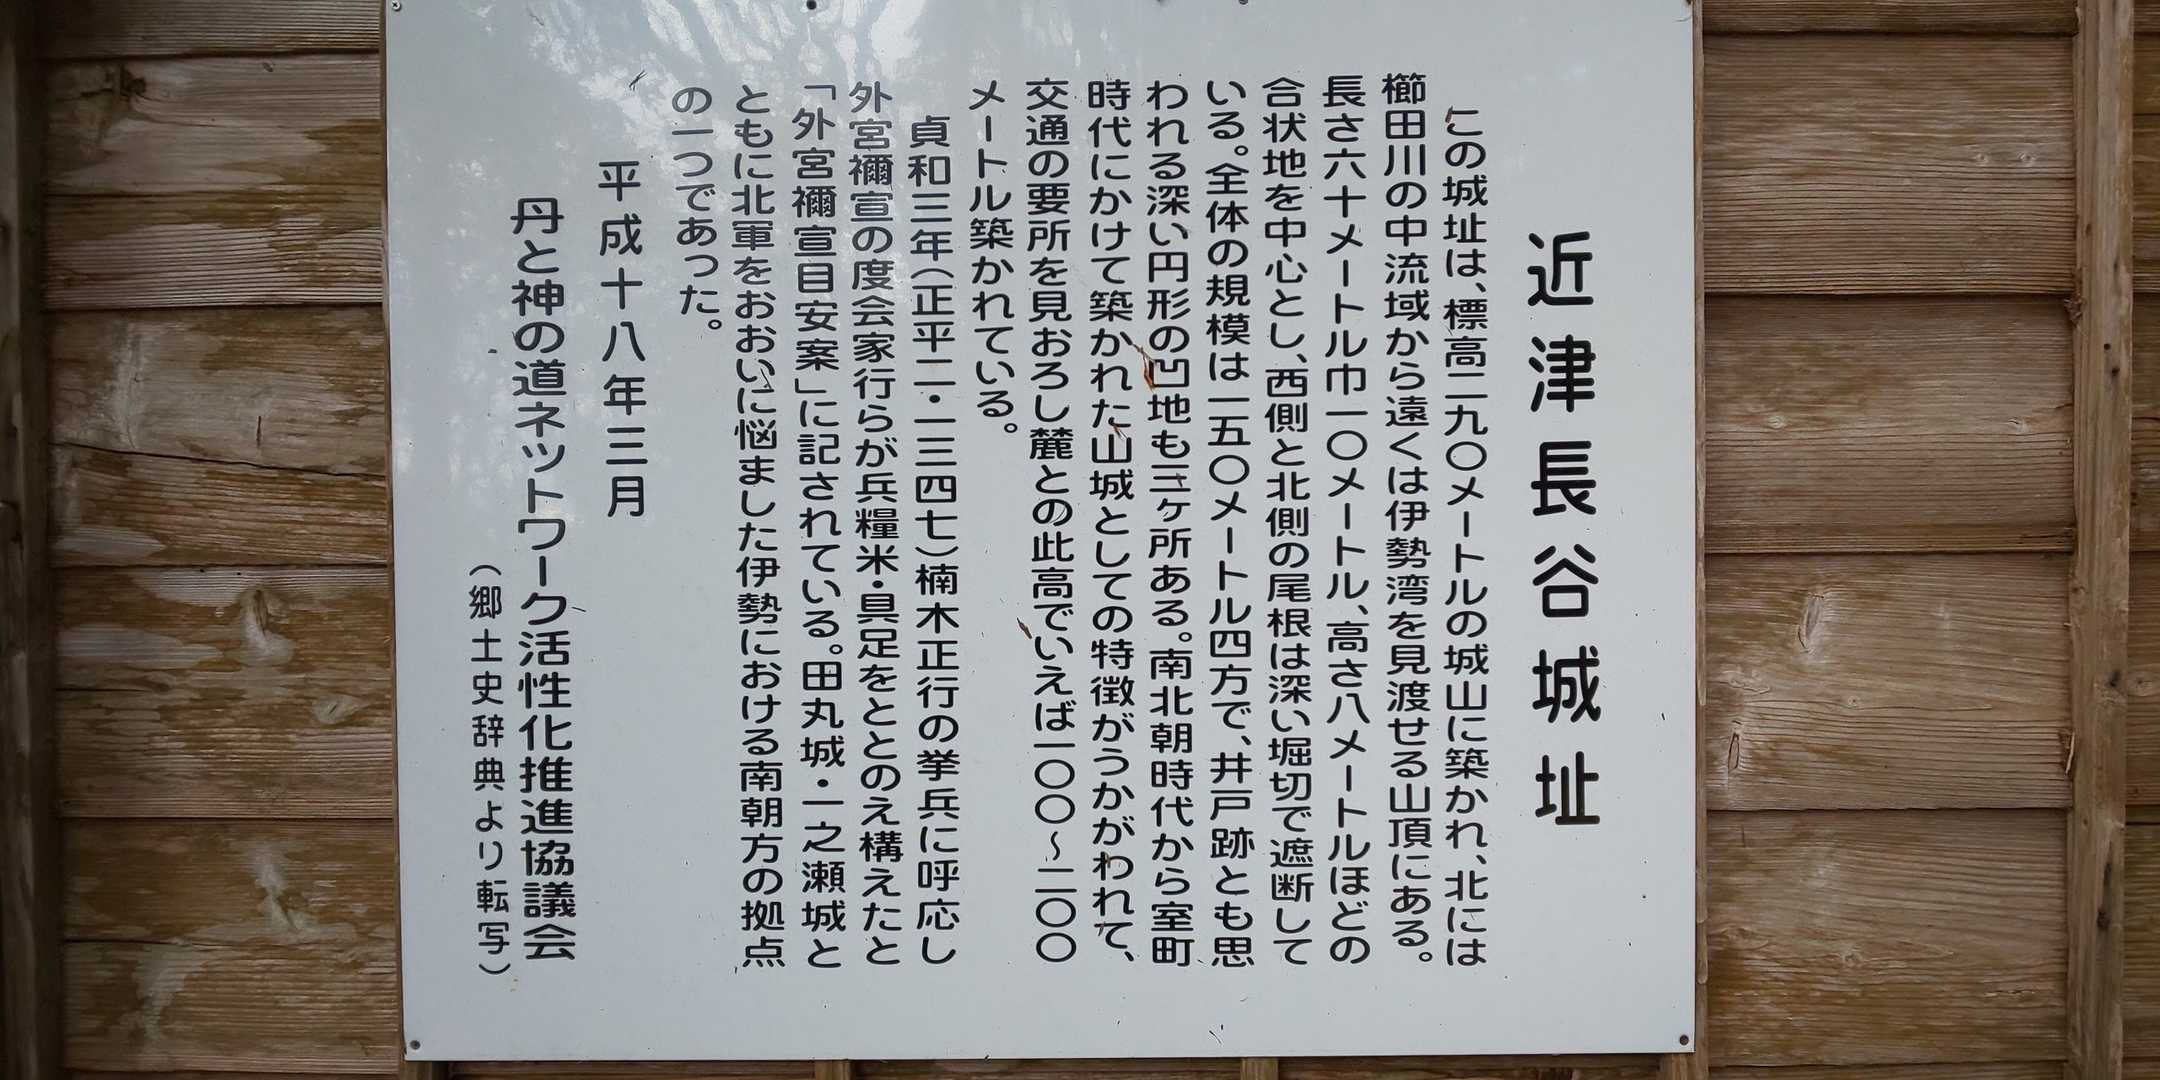 近津長谷城址
この城址は、標高二九〇メートルの城山に築かれ、北には
櫛田川の中流域から遠くは伊勢湾を見渡せる山頂にある。
長さ六十メートル巾一〇メートル、高さ八メートルほどの
合状地を中心とし、西側と北側の尾根は深い堀切で遮断して
いる。全体の規模は一五〇メートル四方で、井戸跡とも思
われる深い円形の凹地も三ヶ所ある。南北朝時代から室町
時代にかけて築かれた山城としての特徴がうかがわれて、
交通の要所を見おろし麓との此高でいえば一〇〇〜二〇〇
メートル築かれている。
貞和三年（正平二・一三四七）楠木正行の挙兵に呼応し
外宮禰宣の度会家行らが兵糧米・具足をととのえ構えたと
「外宮禰宣目安案」に記されている。田丸城・一之瀬城と
ともに北軍をおおいに悩ました伊勢における南朝方の拠点
の一つであった。
平成十八年三月
丹と神の道ネットワーク活性化推進協議会
（郷土史辞典より転写）